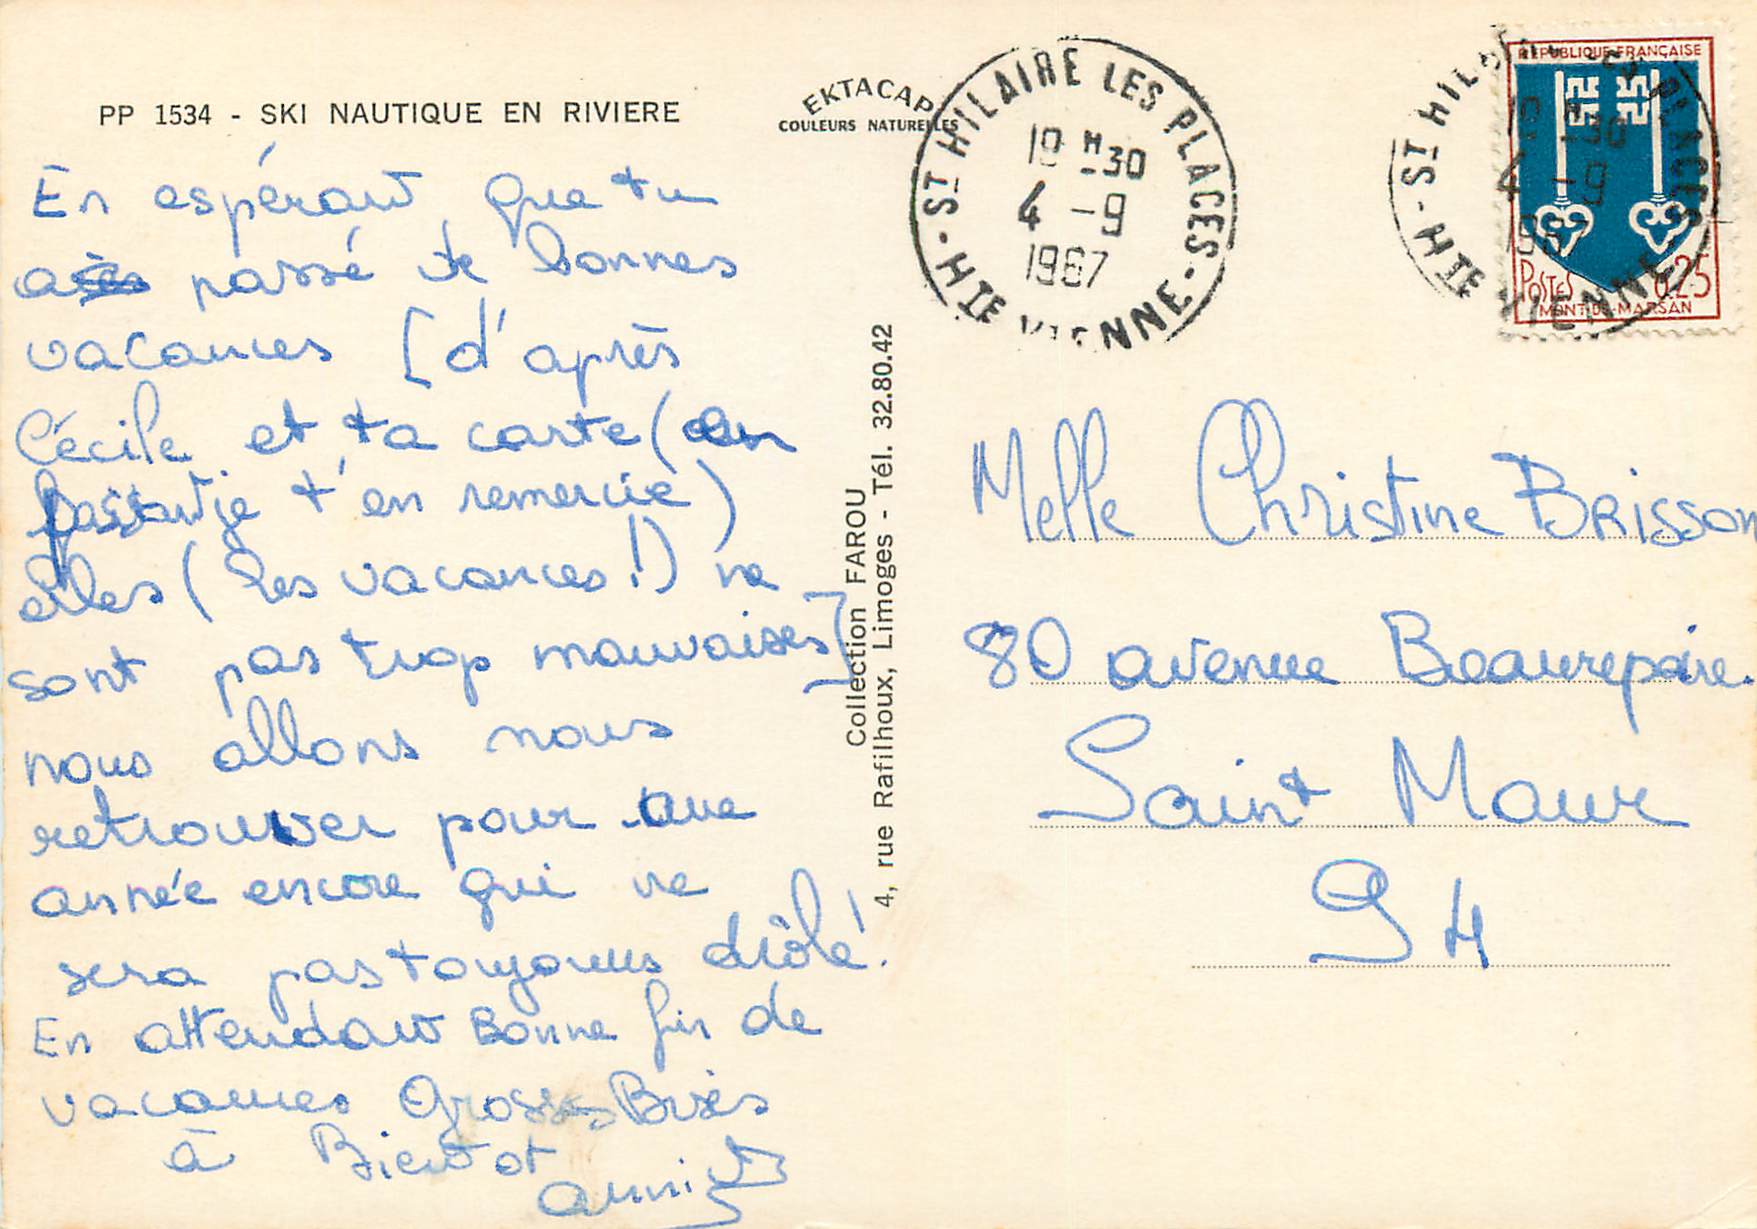 PP 1534 - SKI NAUTIQUE EN RIVIERE
EKTACAP
COULEURS NATURELLES
En espérant que tu
as passé de bonnes
vacances [d'après
Cécile et ta carte (en
passant je t'en remercie)
elles (les vacances !) ne
sont pas trop mauvaises]
nous allons nous
retrouver pour une
année encore qui ne
sera pas toujours drôle !
En attendant Bonne fin de
vacances Grosses Bises
à Bientôt
Collection FAROU
4, rue Rafilhoux, Limoges - Tél. 32.80.42
ST HILAIRE LES PLACES - HTE VIENNE -
19 H 30
4 - 9
1967
ST HILAIRE LES PLACES - HTE VIENNE
19 H 30
4 - 9
1967
REPUBLIQUE FRANÇAISE
POSTES 0,25
MONT-DE-MARSAN
Melle Christine BRisson
80 avenue Beaurepaire.
Saint Maur
94